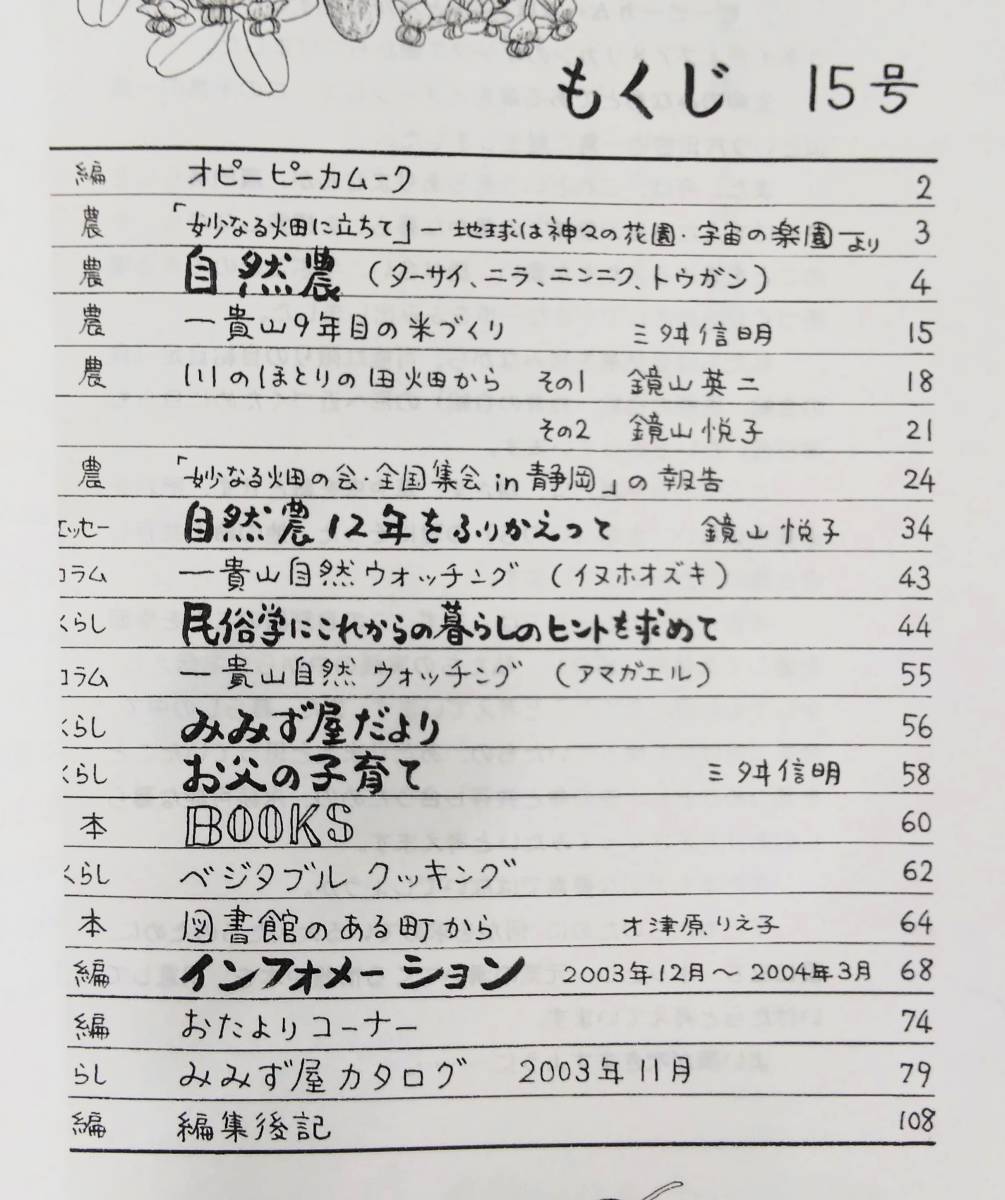 もくじ 15号
編 オピ・ピーカムーク 2
農 「妙なる畑に立ちて」ー地球は神々の花園・宇宙の楽園ーより 3
農 自然農 (ターサイ、ニラ、ニンニク、トウガン) 4
農 一貴山9年目の米づくり 三舛信明 15
農 川のほとりの田畑から その1 鏡山英二 18
その2 鏡山悦子 21
農 「妙なる畑の会 全国集会 in 静岡」の報告 24
エッセー 自然農12年をふりかえって 鏡山悦子 34
コラム 一貴山自然ウォッチング (イヌホオズキ) 43
くらし 民俗学にこれからの暮らしのヒントを求めて 44
コラム 一貴山自然ウォッチング (アマガエル) 55
くらし みみず屋だより 56
くらし お父の子育て 三舛信明 58
本 BOOKS 60
くらし ベジタブルクッキング 62
本 図書館のある町から 才津原りえ子 64
編 インフォメーション 2003年12月〜2004年3月 68
編 おたよりコーナー 74
らし みみず屋カタログ 2003年11月 79
編 編集後記 108